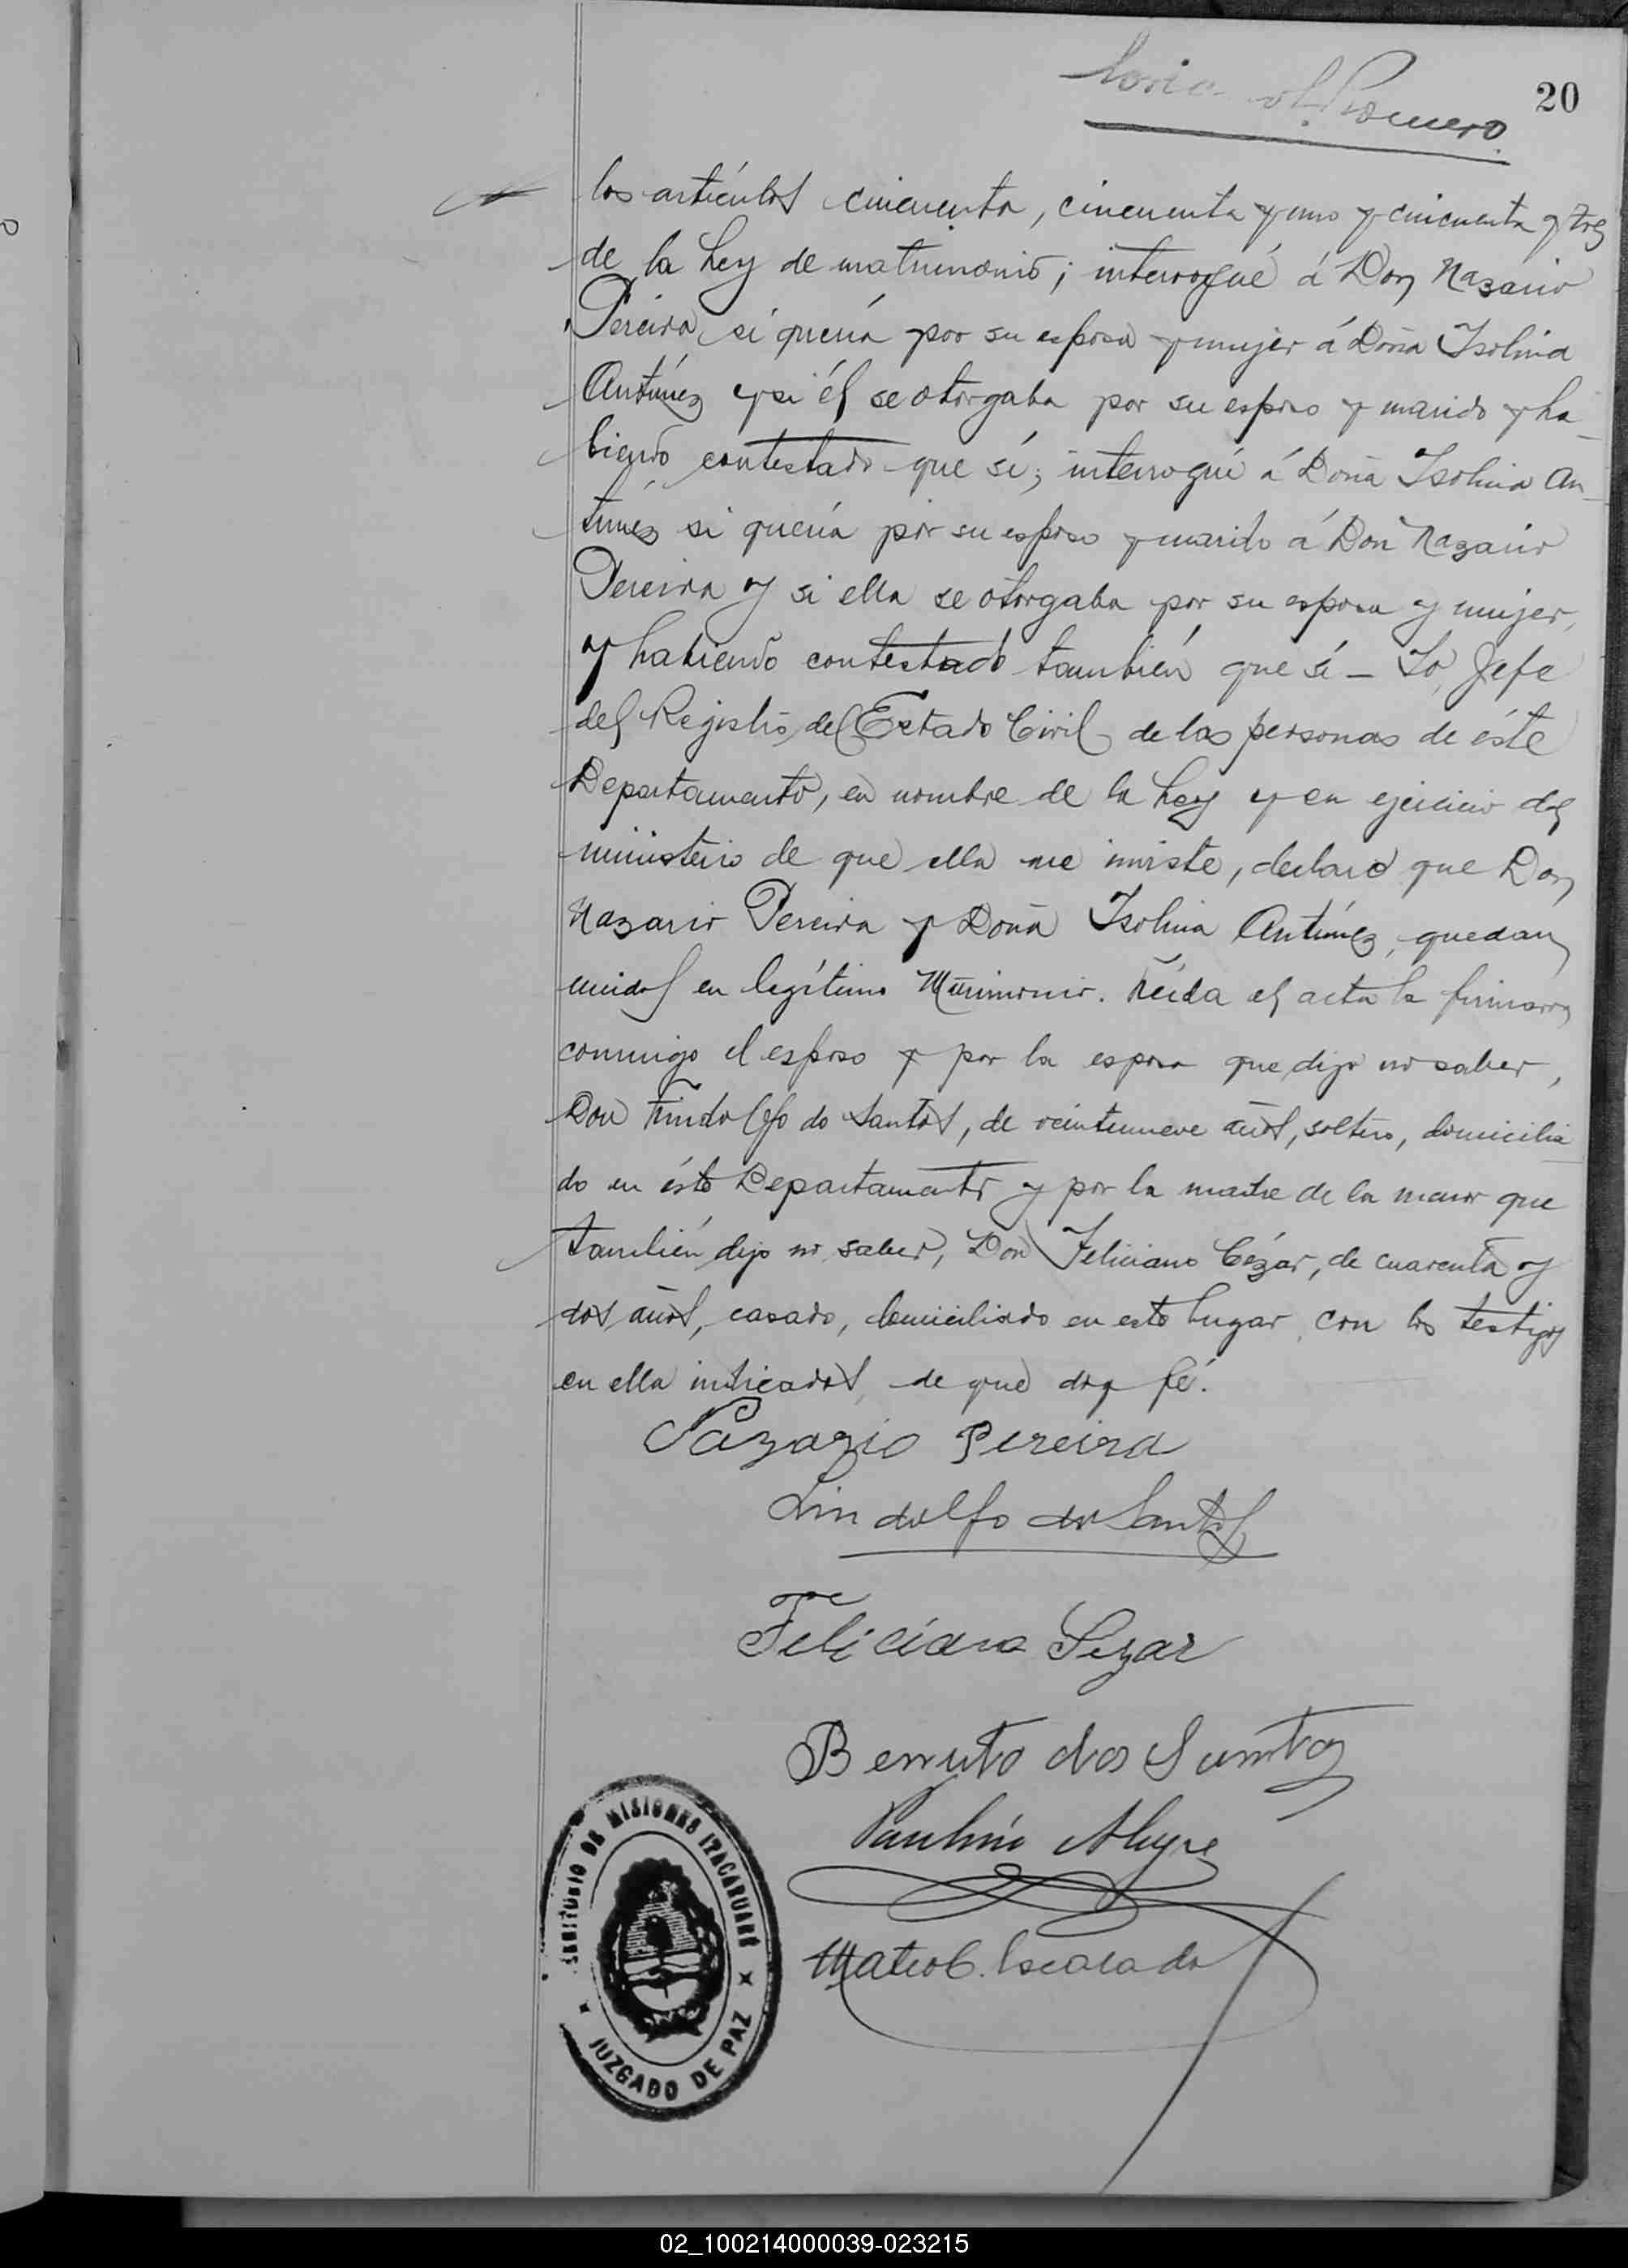 20
Romero
los artículos cincuenta, cincuenta y uno y cincuenta y tres
de la Ley de matrimonio; interrogué á Don Nazario
Pereira, si quería por su esposa y mujer á Doña Isolina
Antúnez y si él se otorgaba por su esposo y marido y ha_
biendo contestado que sí; interrogué á Doña Isolina An_
túnez si quería por su esposo y marido á Don Nazario
Pereira y si ella se otorgaba por su esposa y mujer,
y habiendo contestado también que sí _ Yo, Jefe
del Registro del Estado Civil de las personas de éste
Departamento, en nombre de la Ley y en ejercicio del
ministerio de que ella me inviste, declaro que Don
Nazario Pereira y Doña Isolina Antúnez, quedan
unidos en legítimo. Leída el acta la firmaron
conmigo el esposo y por la esposa que dijo no saber,
Don do Santos, de veintinueve años, soltero, domicilia
do en éste Departamento y por la madre de la menor que
también dijo no saber, Don Feliciano Cézar, de cuarenta y
dos años, casado, domiciliado en este lugar, con los testigos
en ella indicados, de que doy fé.
Nazario Pereira
Lindolfo do Santos
Feliciano Sezar
Bennto dos Santos
Paulino Alegre
Mateo C. Escalada
TERRITORIO DE MISIONES ITACARUARÉ
JUZGADO DE PAZ
02_100214000039-023215